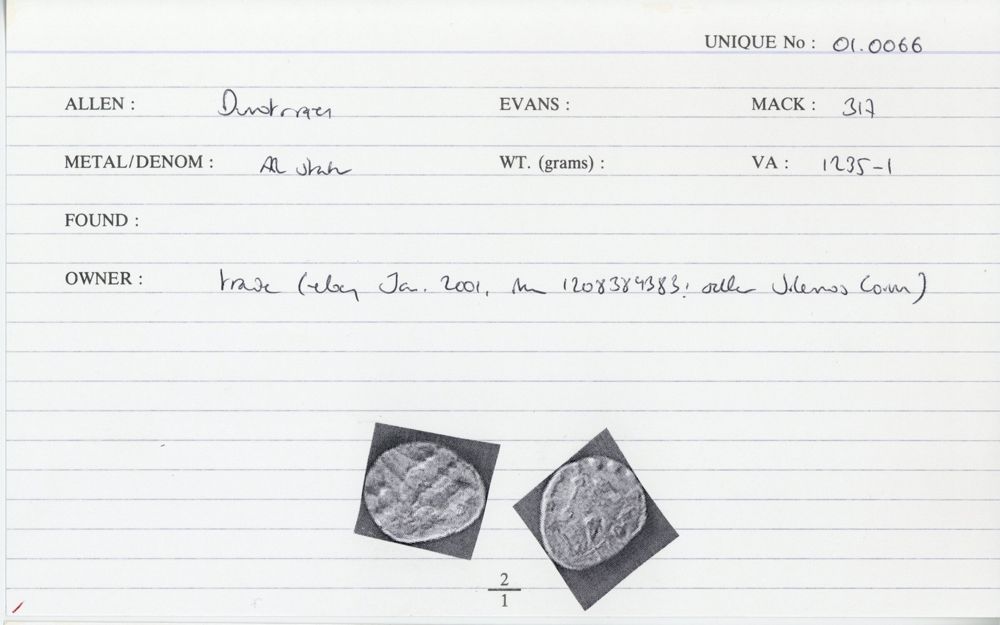 UNIQUE No : 01.0066
ALLEN : Durotriges EVANS : MACK : 317
METAL/DENOM : AR stater WT. (grams) : VA : 1235-1
FOUND :
OWNER : trade (ebay Jan. 2001, 1208384383; seller Coins)
2
1